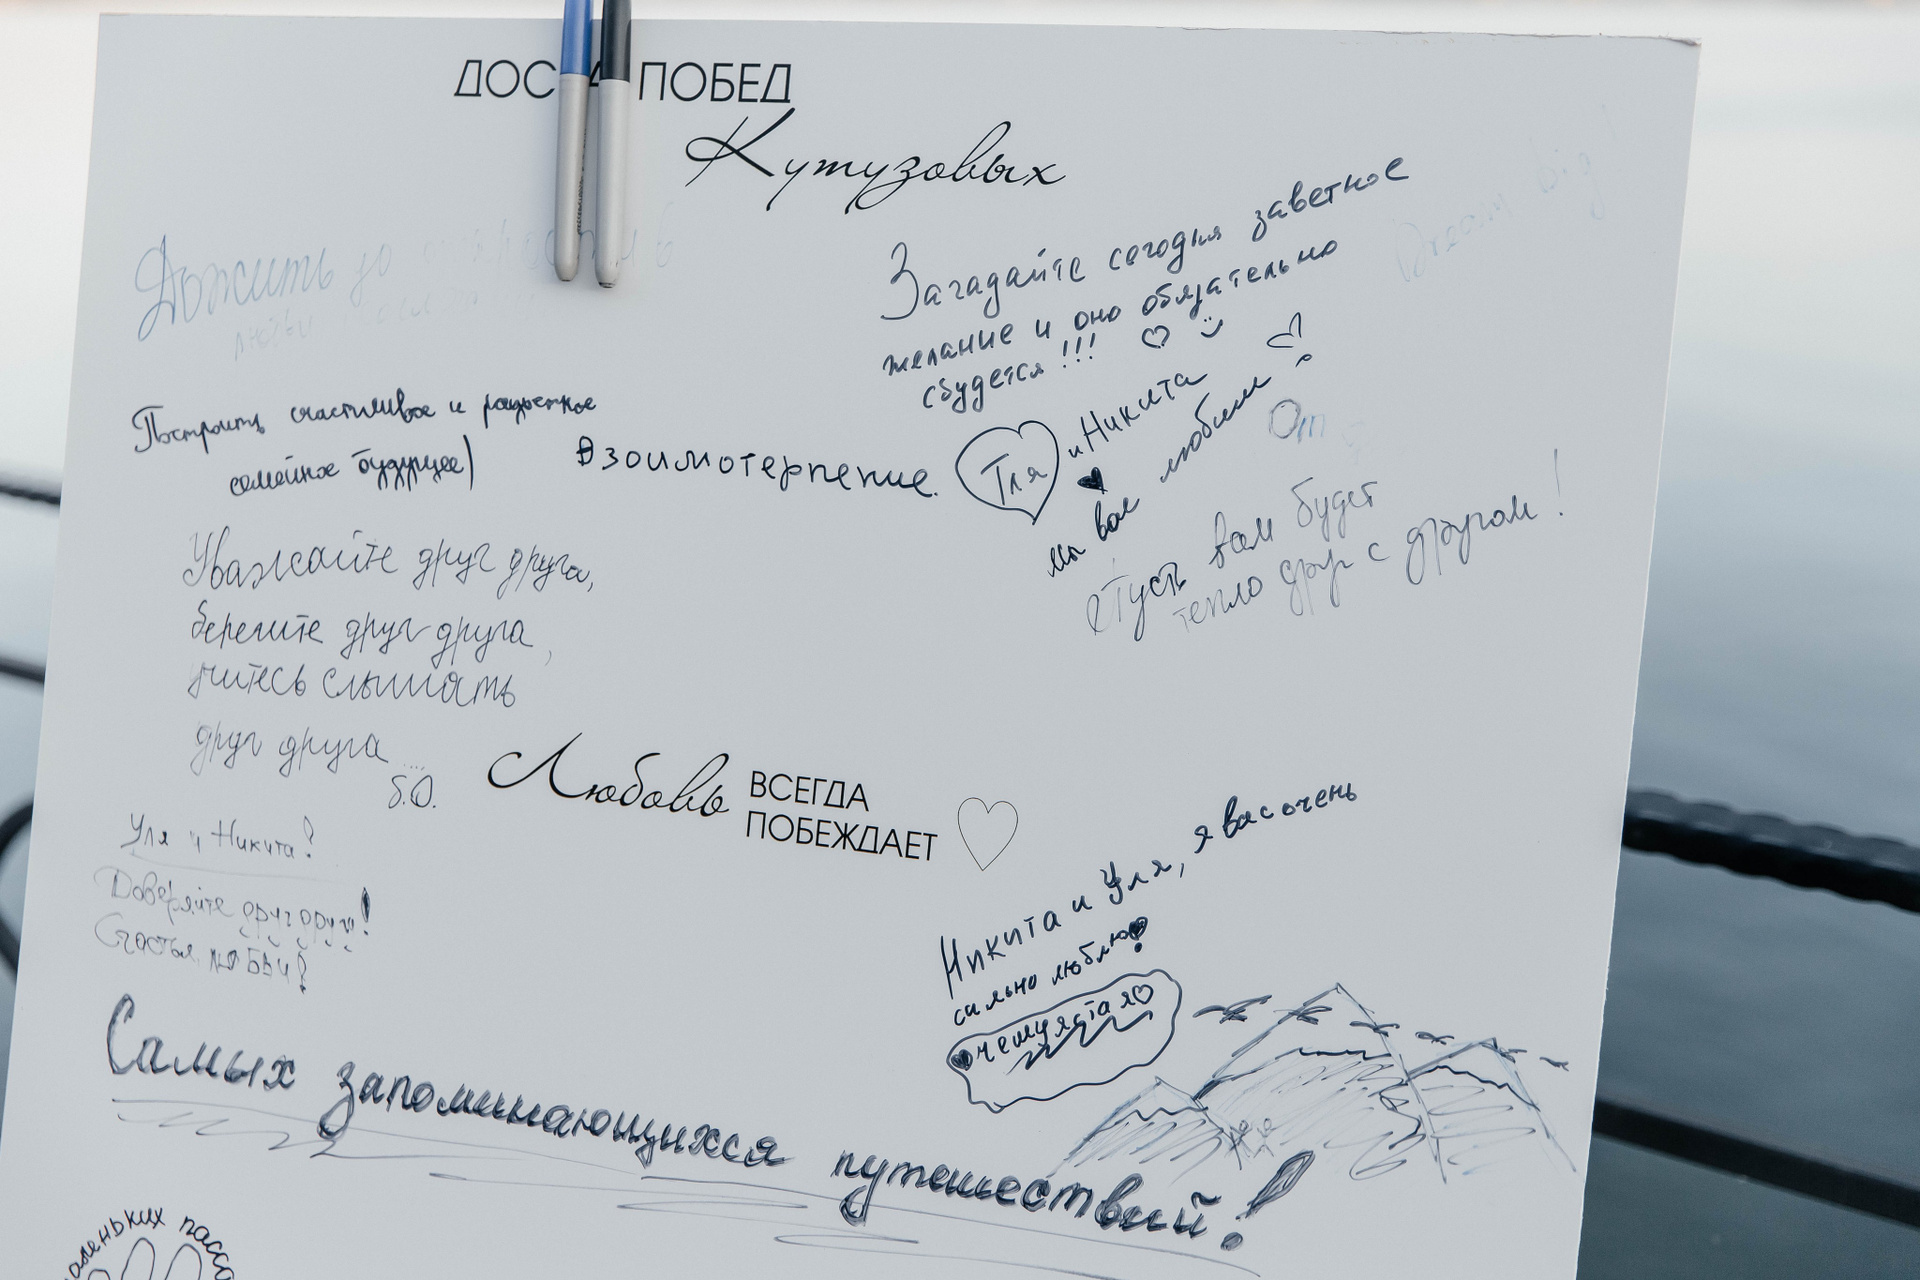 ДОСКА ПОБЕД
Кутузовых
Дожить до
Dream big
Загадайте сегодня заветное
желание и оно обязательно
сбудется!!!
Построить счастливое и радостное
семейное будущее)
Взоимотерпение.
Уля и Никита
мы вас любим
От
Пусть вам будет
тепло друг с другом!
Уважайте друг друга,
берегите друг друга,
учитесь слышать
друг друга....
Б.О.
Любовь ВСЕГДА
ПОБЕЖДАЕТ
Уля и Никита!
Доверяйте друг другу!
Счастья,
Никита и Уля, я вас очень
сильно люблю
Самых запоминающихся путешествий!